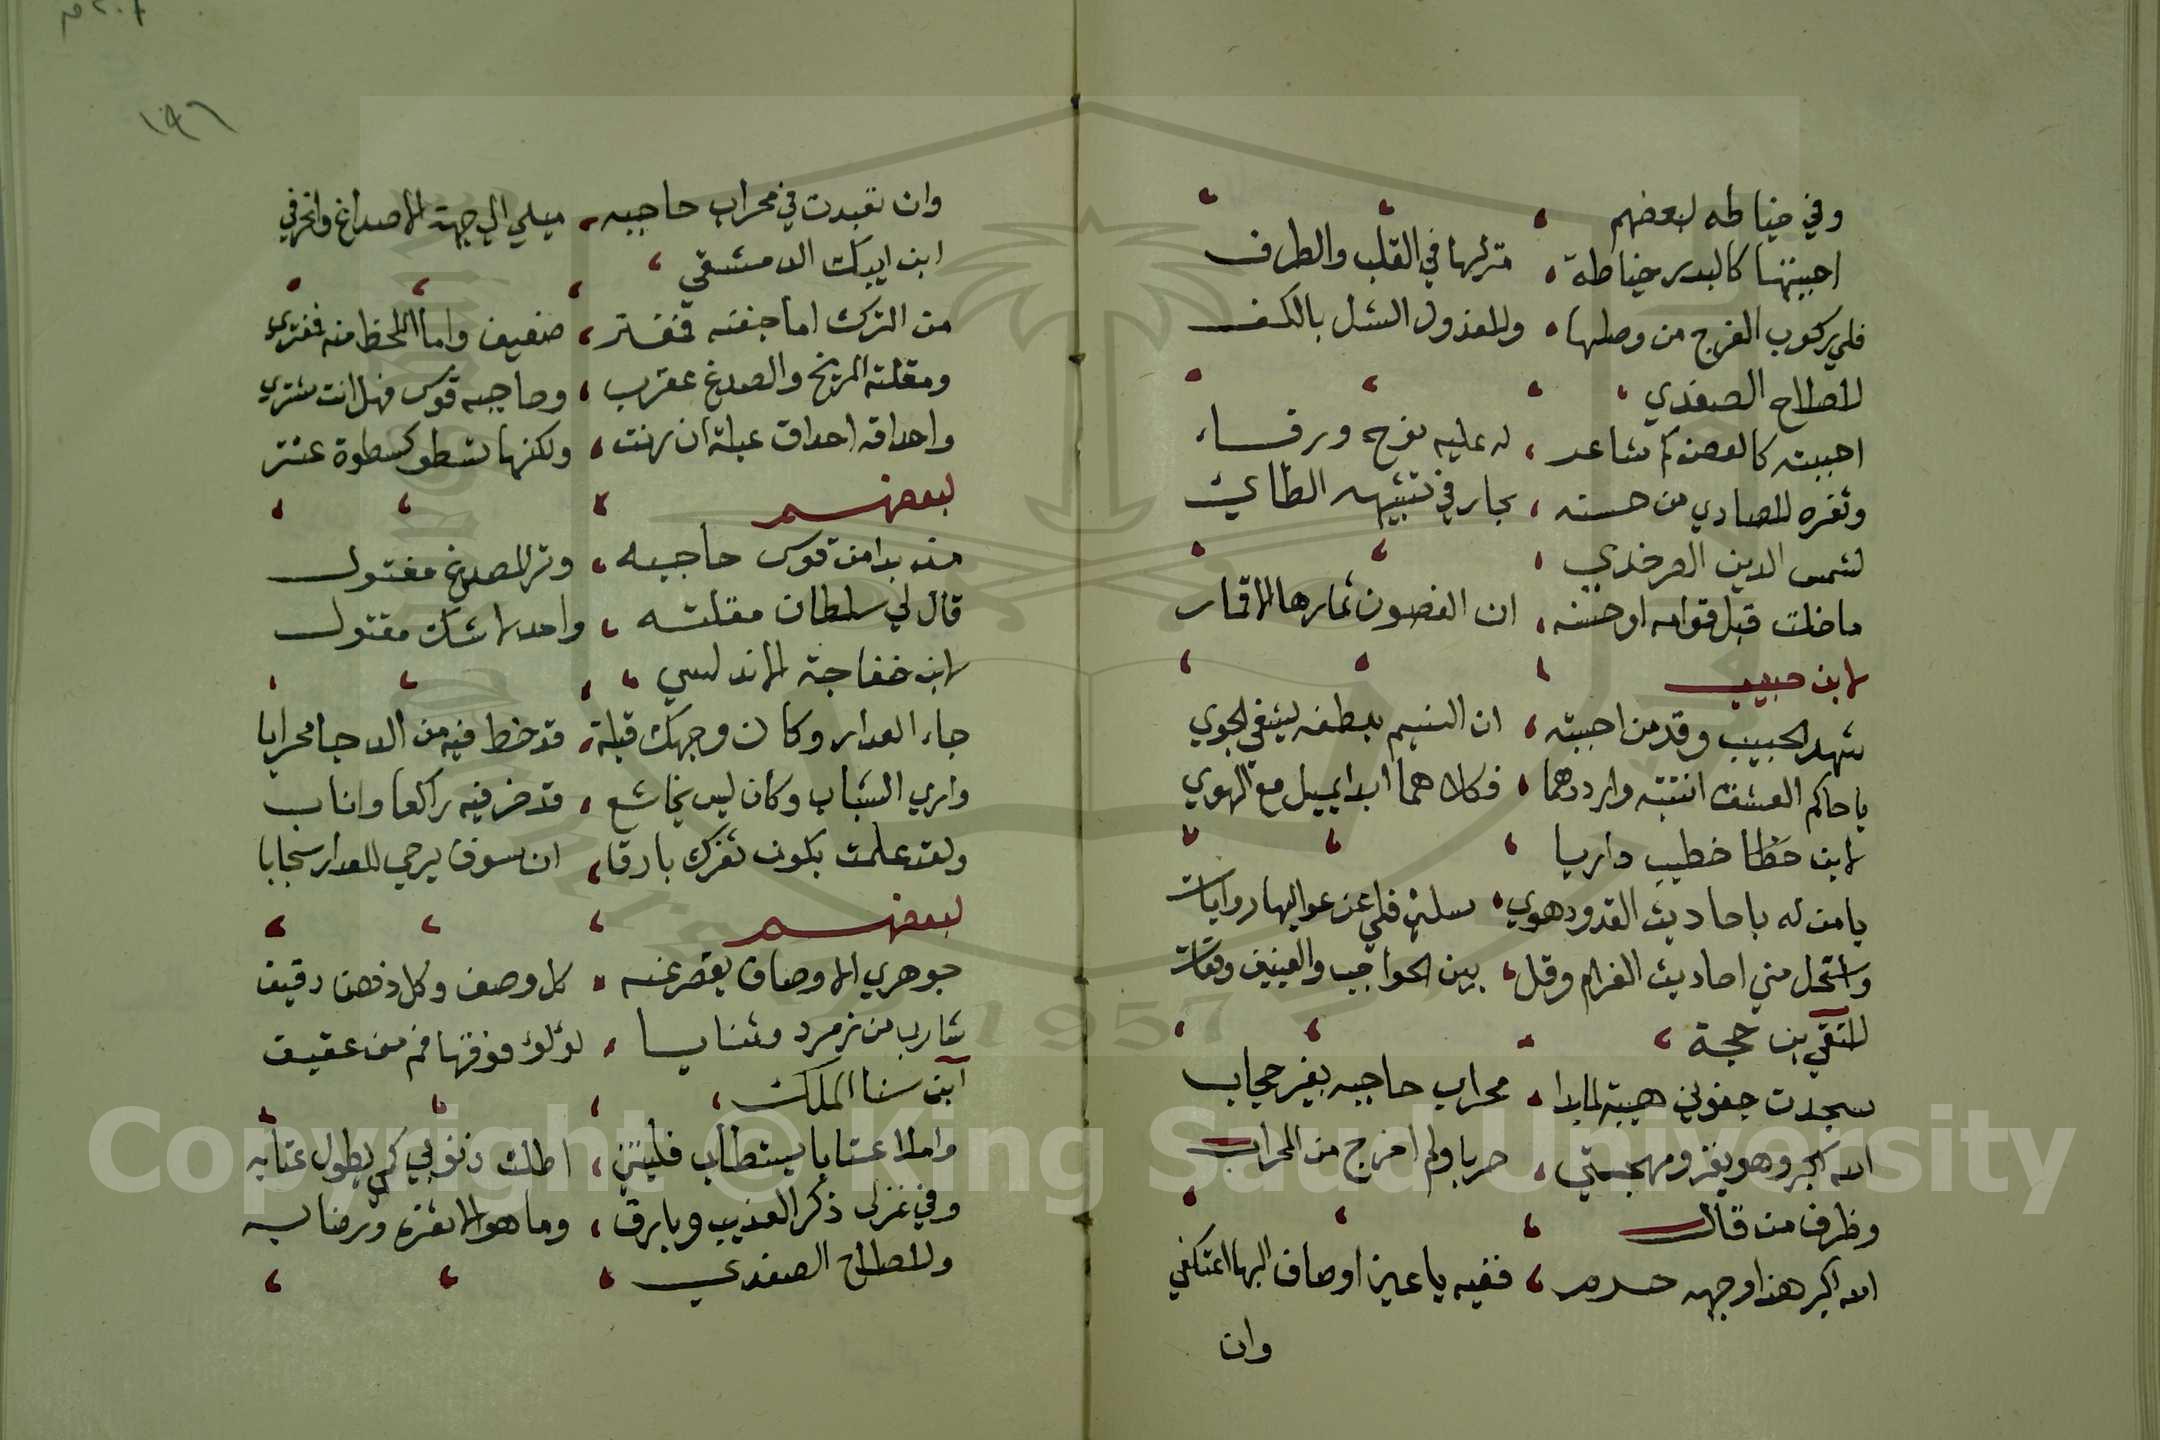 وفي خياطه لبعضهم
احببتها كالبدر خياطة ، منزلها في القلب والطرف
فلي ركوب الفرج من وصلها ، وللعذول الشل بالكف
للصلاح الصفدي
احببته كالغصن كم شاعر ، له عليه نوح ورقاء
وثغره للصادي من حسنه ، يحار في تشبيهه الطائي
لشمس الدين الصرخدي
ما خلت قبل قوامه او حسنه ، ان الغصون ثمارها الاقمار
لابن حبيب
شهد الحبيب وقد من احببته ، ان النسيم بعطفه ليشفي الجوي
يا حاكم العشق انتبه وارددهما ، فكلاهما ابدا يميل مع الهوي
لابن خطا خطيب داريا
يا من له باحاديث القدود هوي ، سلني فلي عن عواليها روايات
واستحل مني احاديث الغرام وقل ، بين الحواجب والعينين وقفات
للتقي بن حجة
سجدت جفوني هيبة لما بدا ، محراب حاجبه بغير حجاب
الله اكبر وهو يغزو مهجتي ، حربا ولم اخرج من المحراب
وظرف من قال
الله اكبر هذا وجهه حرم ، ففيه يا عين اوصاف البها اعتكفي
وان
١٩٦
وان تعبدت في محراب حاجبه ، ميلي الي جهة الاصداغ وانحرفي
ابن ايبك الدمشقي
من الترك اما جفنه فمفتر ، ضعيف واما اللحظ منه فمفتري
ومقلته المريخ والصدغ عقرب ، وحاجبه قوس فهل انت مشتري
واحداقه احداق عبلة ان رنت ، ولكنها تسطو كسطوة عنتر
لبعضهم
مذ بدا من قوس حاجبه ، وتر للصدغ مفتول
قال لي سلطان مقلته ، واحد لا شك مقتول
لابن خفاجة الاندلسي
جاء العذار وكان وجهك قبلة ، قد خط فيه من الدجا محرابا
واري الشباب وكان ليس بخاشع ، قد خر فيه راكعا واناب
ولقد علمت بكون ثغرك بارقا ، ان سوف يرجي للعذار سحابا
لبعضهم
جوهري الاوصاف يقصر عنه ، كل وصف وكل ذهن دقيق
شارب من زمرد وثنايا ، لؤلؤ فوقها فم من عقيق
ابن سنا الملك
واملا عتابا يستطاب فليتني ، اطلت ذنوبي كي يطول عتابه
وفي غزلي ذكر العذيب وبارق ، وما هو الا ثغره ورضابه
وللصلاح الصفدي
Copyright © King Saud University
1957